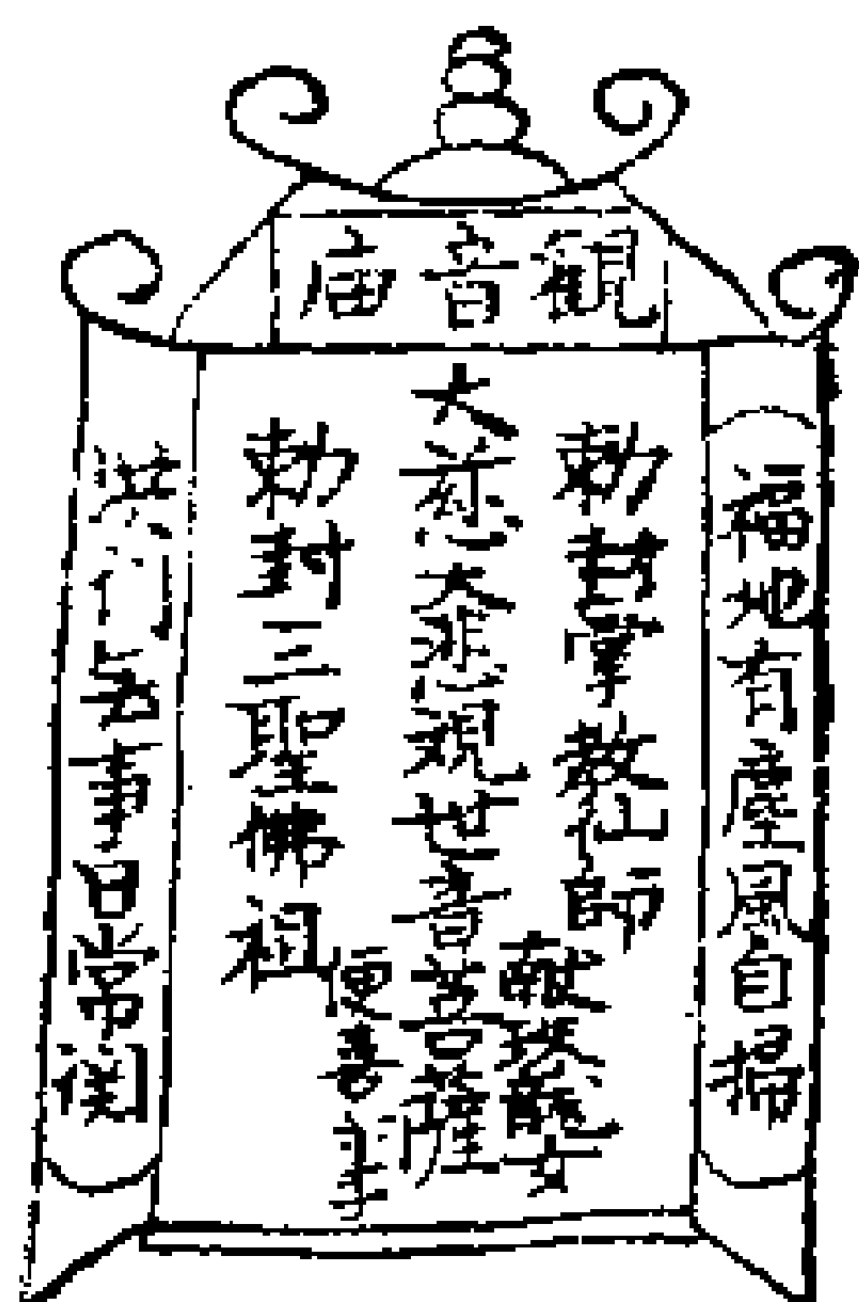 觀音庙
福地有塵風自掃
勅封掌教仙師
大慈大悲觀世音菩薩
勅封三聖佛祖
洪门無事日常闲